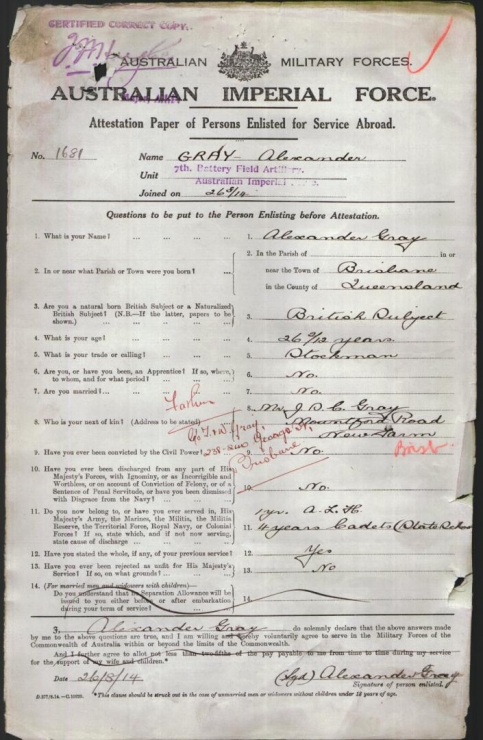 CERTIFIED CORRECT COPY.
AUSTRALIAN MILITARY FORCES.
AUSTRALIAN IMPERIAL FORCE.
Attestation Paper of Persons Enlisted for Service Abroad.
No. 1681 Name GRAY Alexander
Unit 7th. Battery Field Artillery.
Australian Imperial
Joined on
Questions to be put to the Person Enlisting before Attestation.
1. What is your Name? ... 1. Alexander Gray
2. In or near what Parish or Town were you born? ... 2. In the Parish of in or
near the Town of Brisbane
in the County of Queensland
3. Are you a natural born British Subject or a Naturalized
British Subject? (N.B.—If the latter, papers to be
shown.) ... 3. British Subject
4. What is your age? ... 4. 26 years
5. What is your trade or calling? ... 5. Stockman
6. Are you, or have you been, an Apprentice? If so, where,
to whom, and for what period? ... 6. No.
7. Are you married? ... 7. No.
8. Who is your next of kin? (Address to be stated) 8. J. D. C. Gray
Mountford Road
New Farm
Father
Gray,
George St,
Brisbane
Brisb.
9. Have you ever been convicted by the Civil Power? No.
10. Have you ever been discharged from any part of His
Majesty's Forces, with Ignominy, or as Incorrigible and
Worthless, or on account of Conviction of Felony, or of a
Sentence of Penal Servitude, or have you been dismissed
with Disgrace from the Navy? 10. No.
11. Do you now belong to, or have you ever served in, His
Majesty's Army, the Marines, the Militia, the Militia
Reserve, the Territorial Force, Royal Navy, or Colonial
Forces? If so, state which, and if not now serving,
state cause of discharge ... 11. 1 yr. A.L.H.
4 years Cadets (State School
12. Have you stated the whole, if any, of your previous service? 12. Yes
13. Have you ever been rejected as unfit for His Majesty's
Service? If so, on what grounds? ... 13. No
14. (For married men and widowers with children)—
Do you understand that no Separation Allowance will be
issued to you either before or after embarkation
during your term of service? 14.
I, Alexander Gray do solemnly declare that the above answers made
by me to the above questions are true, and I am willing and hereby voluntarily agree to serve in the Military Forces of the
Commonwealth of Australia within or beyond the limits of the Commonwealth.
And I further agree to allot not less than two-fifths of the pay payable to me from time to time during my service
for the support of my wife and children.*
Date 26/8/14 (Sgd) Alexander Gray
Signature of person enlisted.
*This clause should be struck out in the case of unmarried men or widowers without children under 18 years of age.